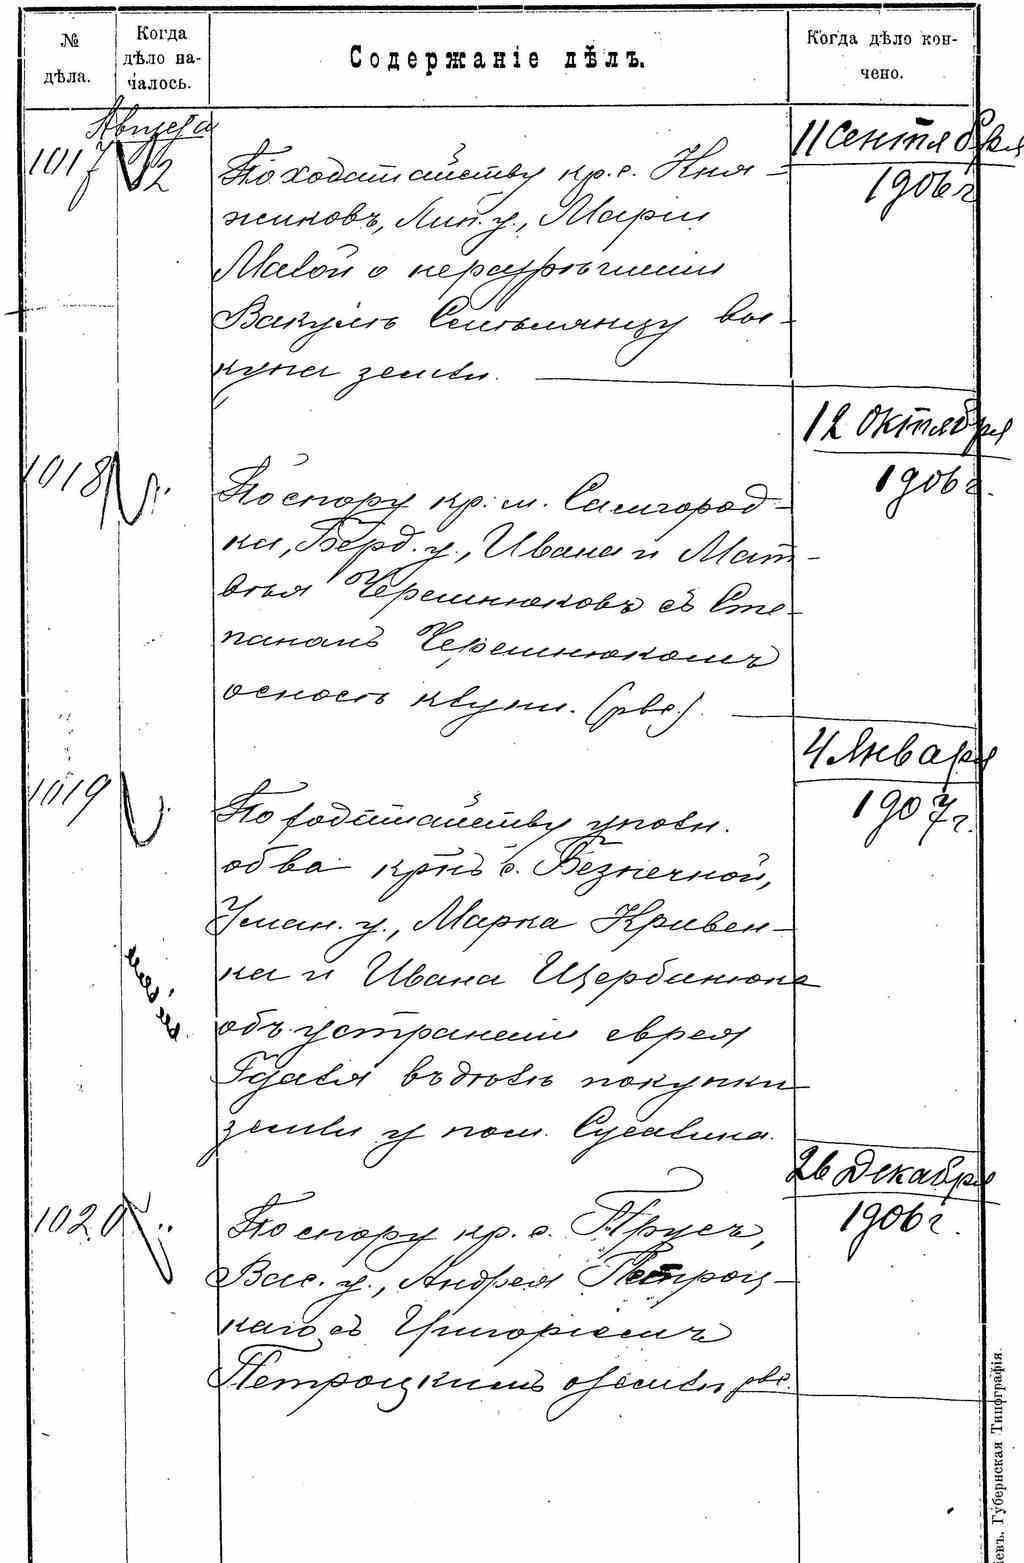 №
дѣла.
Когда
дѣло на-
чалось.
Содержаніе дѣлъ.
Когда дѣло кон-
чено.
Августа
1017
2
По ходатайству кр. с. Кня-
жиковъ, Лип. у., Маріи
о неразрѣшеніи
Вакулѣ вы-
купа земли.
11 Сентября
1906 г.
1018
По спору кр. м. Самгород-
ка, Берд. у., Ивана и Мат-
вѣя Черешнюковъ съ Сте-
паномъ Черешнюкомъ
1019
12 Октября
1906 г.
По ходатайству уполн.
об-ва кр-нъ с. Безпечной,
Уман. у., Марка Кривен-
ка и Ивана Щербанюка
объ устраненіи еврея
въ дѣлѣ покупки
земли у пом.
4 Января
1907 г.
1020
По спору кр. с. Прусъ,
Вас. у., Андрея Петроц-
каго съ Григоріемъ
Петроцкимъ о земли
26 Декабря
1906 г.
Губернская Типографія.